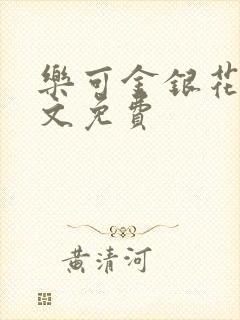 樂可金銀花
文免費
黃清河